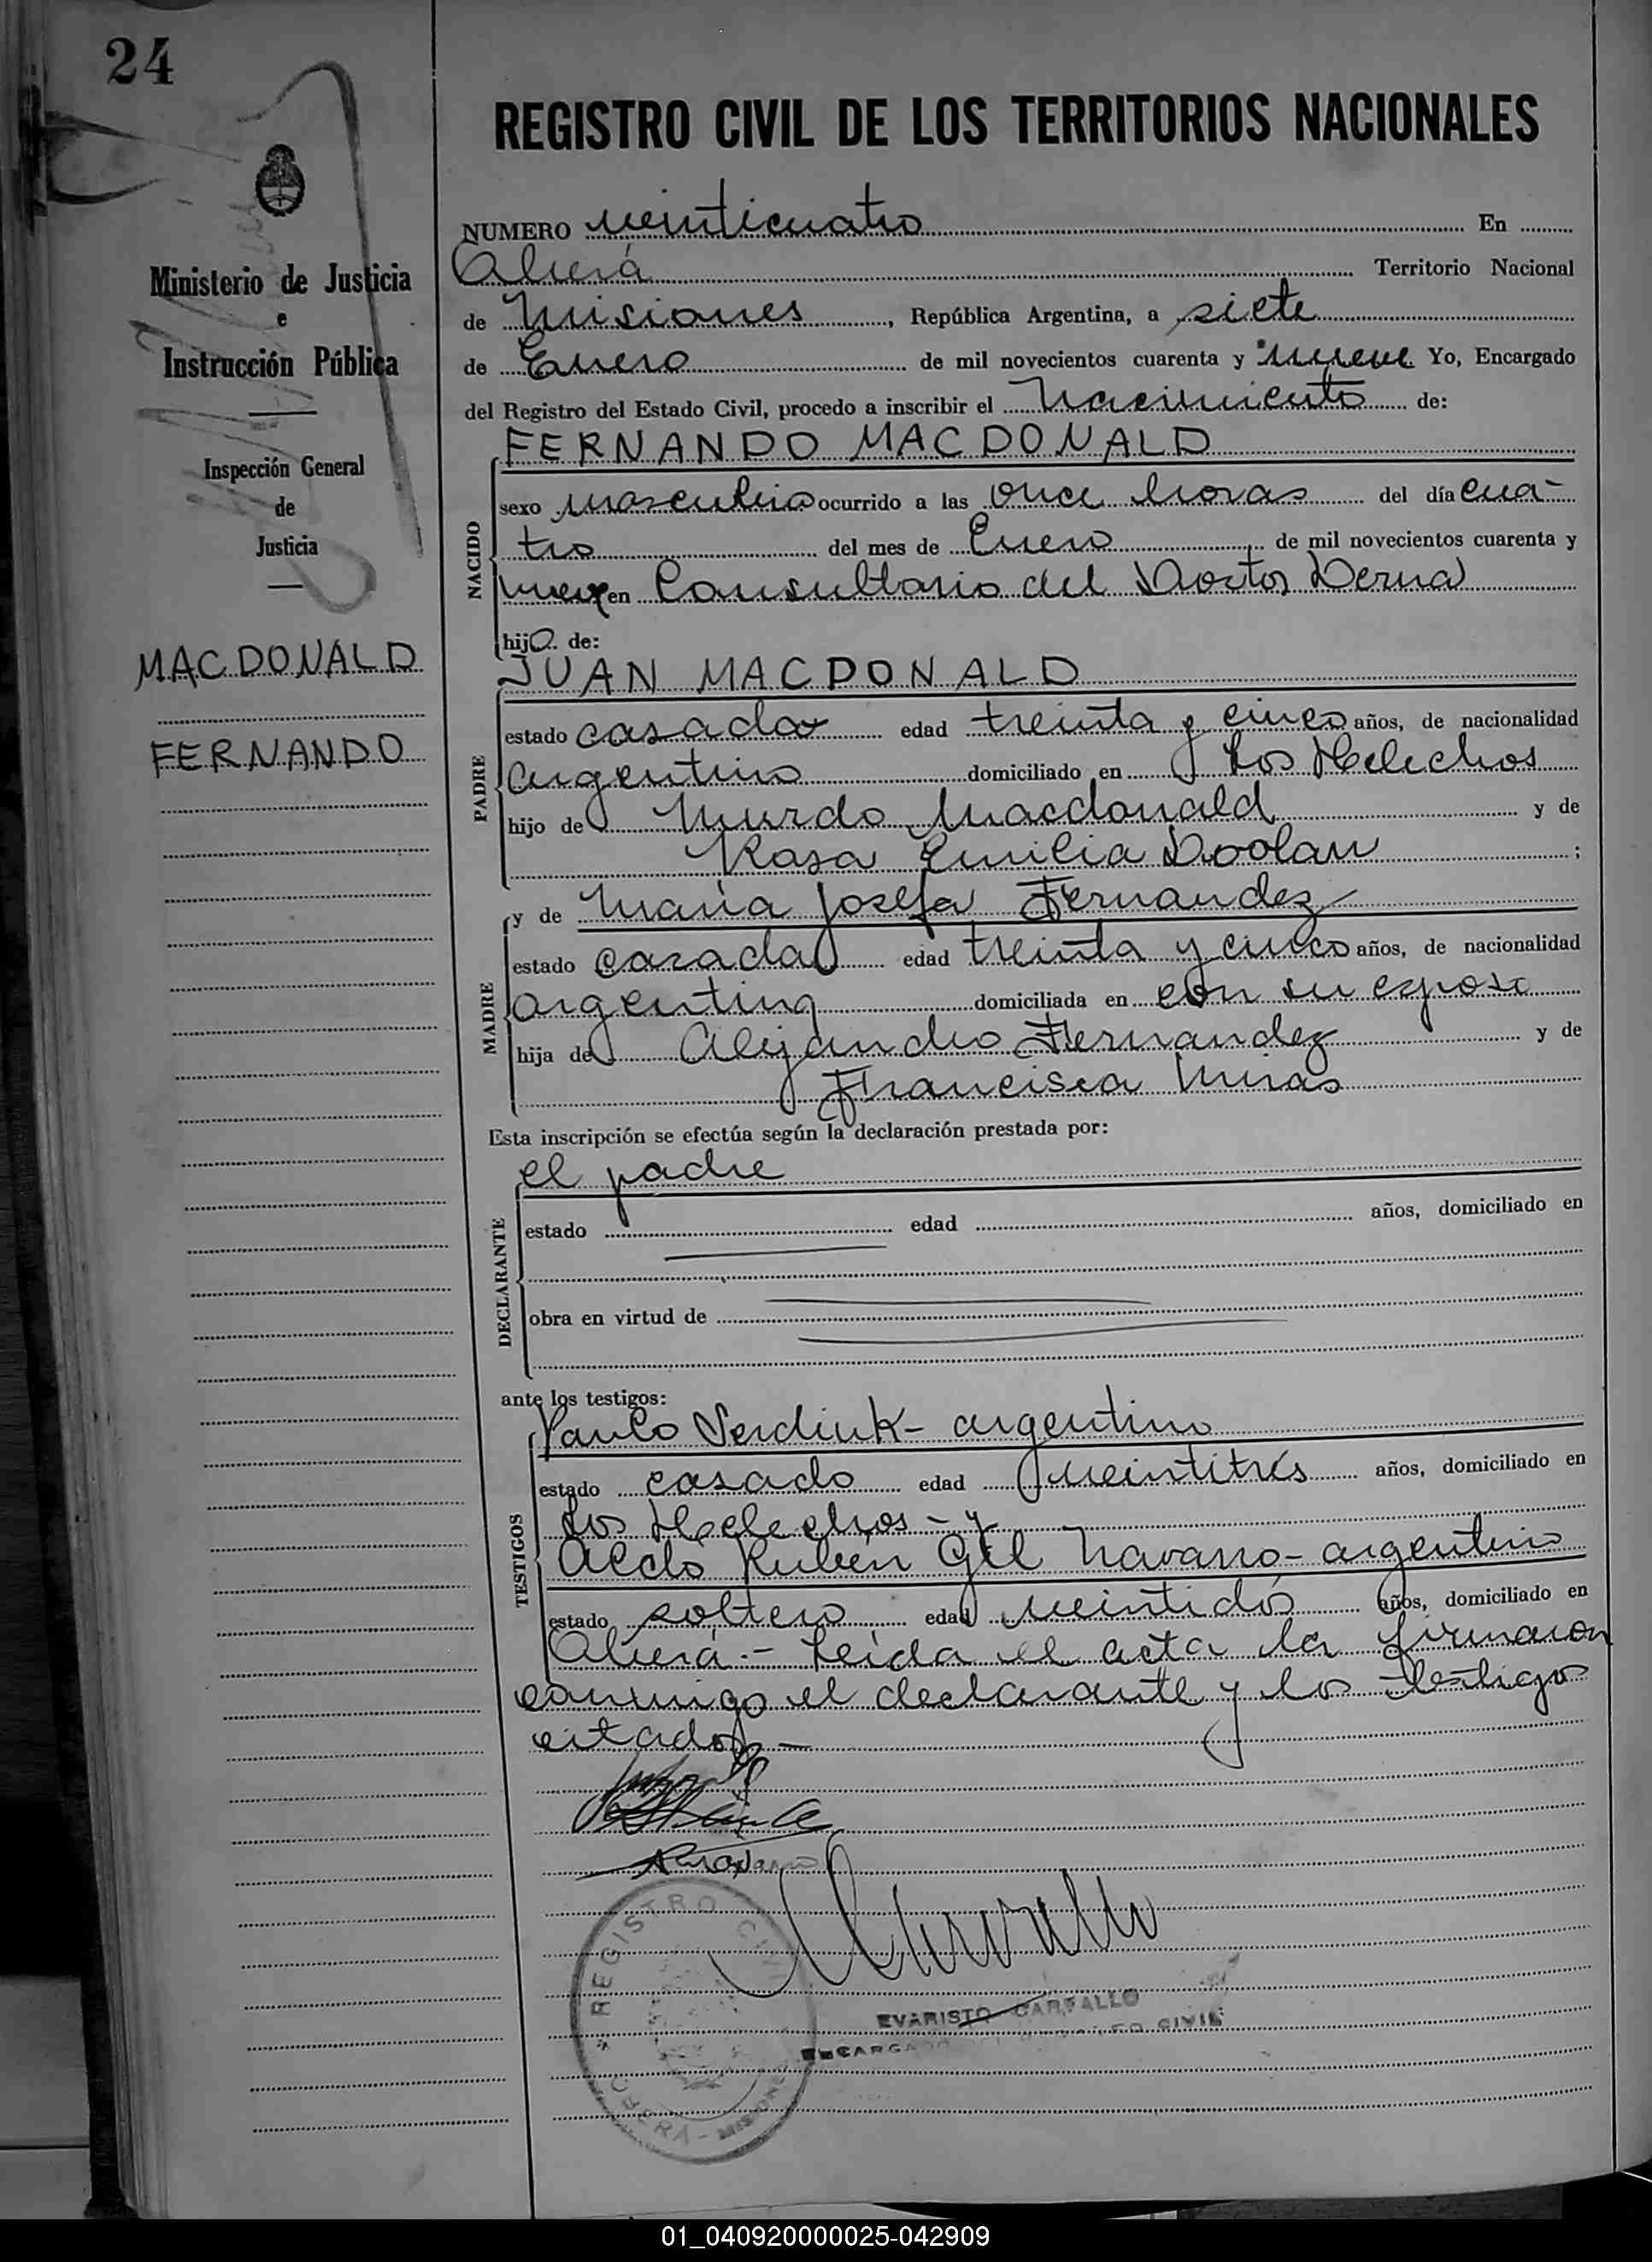 24
REGISTRO CIVIL DE LOS TERRITORIOS NACIONALES
Ministerio de Justicia
e
Instrucción Pública
Inspección General
de
Justicia
MACDONALD
FERNANDO
NUMERO veinticuatro En
Oberá Territorio Nacional
de Misiones, República Argentina, a siete
de Enero de mil novecientos cuarenta y nueve Yo, Encargado
del Registro del Estado Civil, procedo a inscribir el Nacimiento de:
FERNANDO MACDONALD
NACIDO
sexo masculino ocurrido a las once horas del día cua-
tro del mes de Enero de mil novecientos cuarenta y
nueve en Consultorio del Doctor Derna
hijo de:
JUAN MACDONALD
PADRE
estado casado edad treinta y cinco años, de nacionalidad
argentino domiciliado en Los Helechos
hijo de Murdo Macdonald y de
Rosa Emilia Doolan ;
y de María Josefa Fernandez
MADRE
estado casada edad treinta y cinco años, de nacionalidad
argentina domiciliada en con su esposo
hija de Alejandro Fernandez y de
Francisca Miras
Esta inscripción se efectúa según la declaración prestada por:
el padre
DECLARANTE
estado edad años, domiciliado en
obra en virtud de
ante los testigos:
TESTIGOS
Paulo Serdiuk - argentino
estado casado edad veintitrés años, domiciliado en
Los Helechos - y
Aldo Rubén Gil Navarro - argentino
estado soltero edad veintidós años, domiciliado en
Oberá.- Leída el acta la firmaron
conmigo el declarante y los testigos
citados.-
REGISTRO CIVIL
OBERÁ - MISIONES
EVARISTO CARVALLO
ENCARGADO DEL REGISTRO CIVIL
01_040920000025-042909